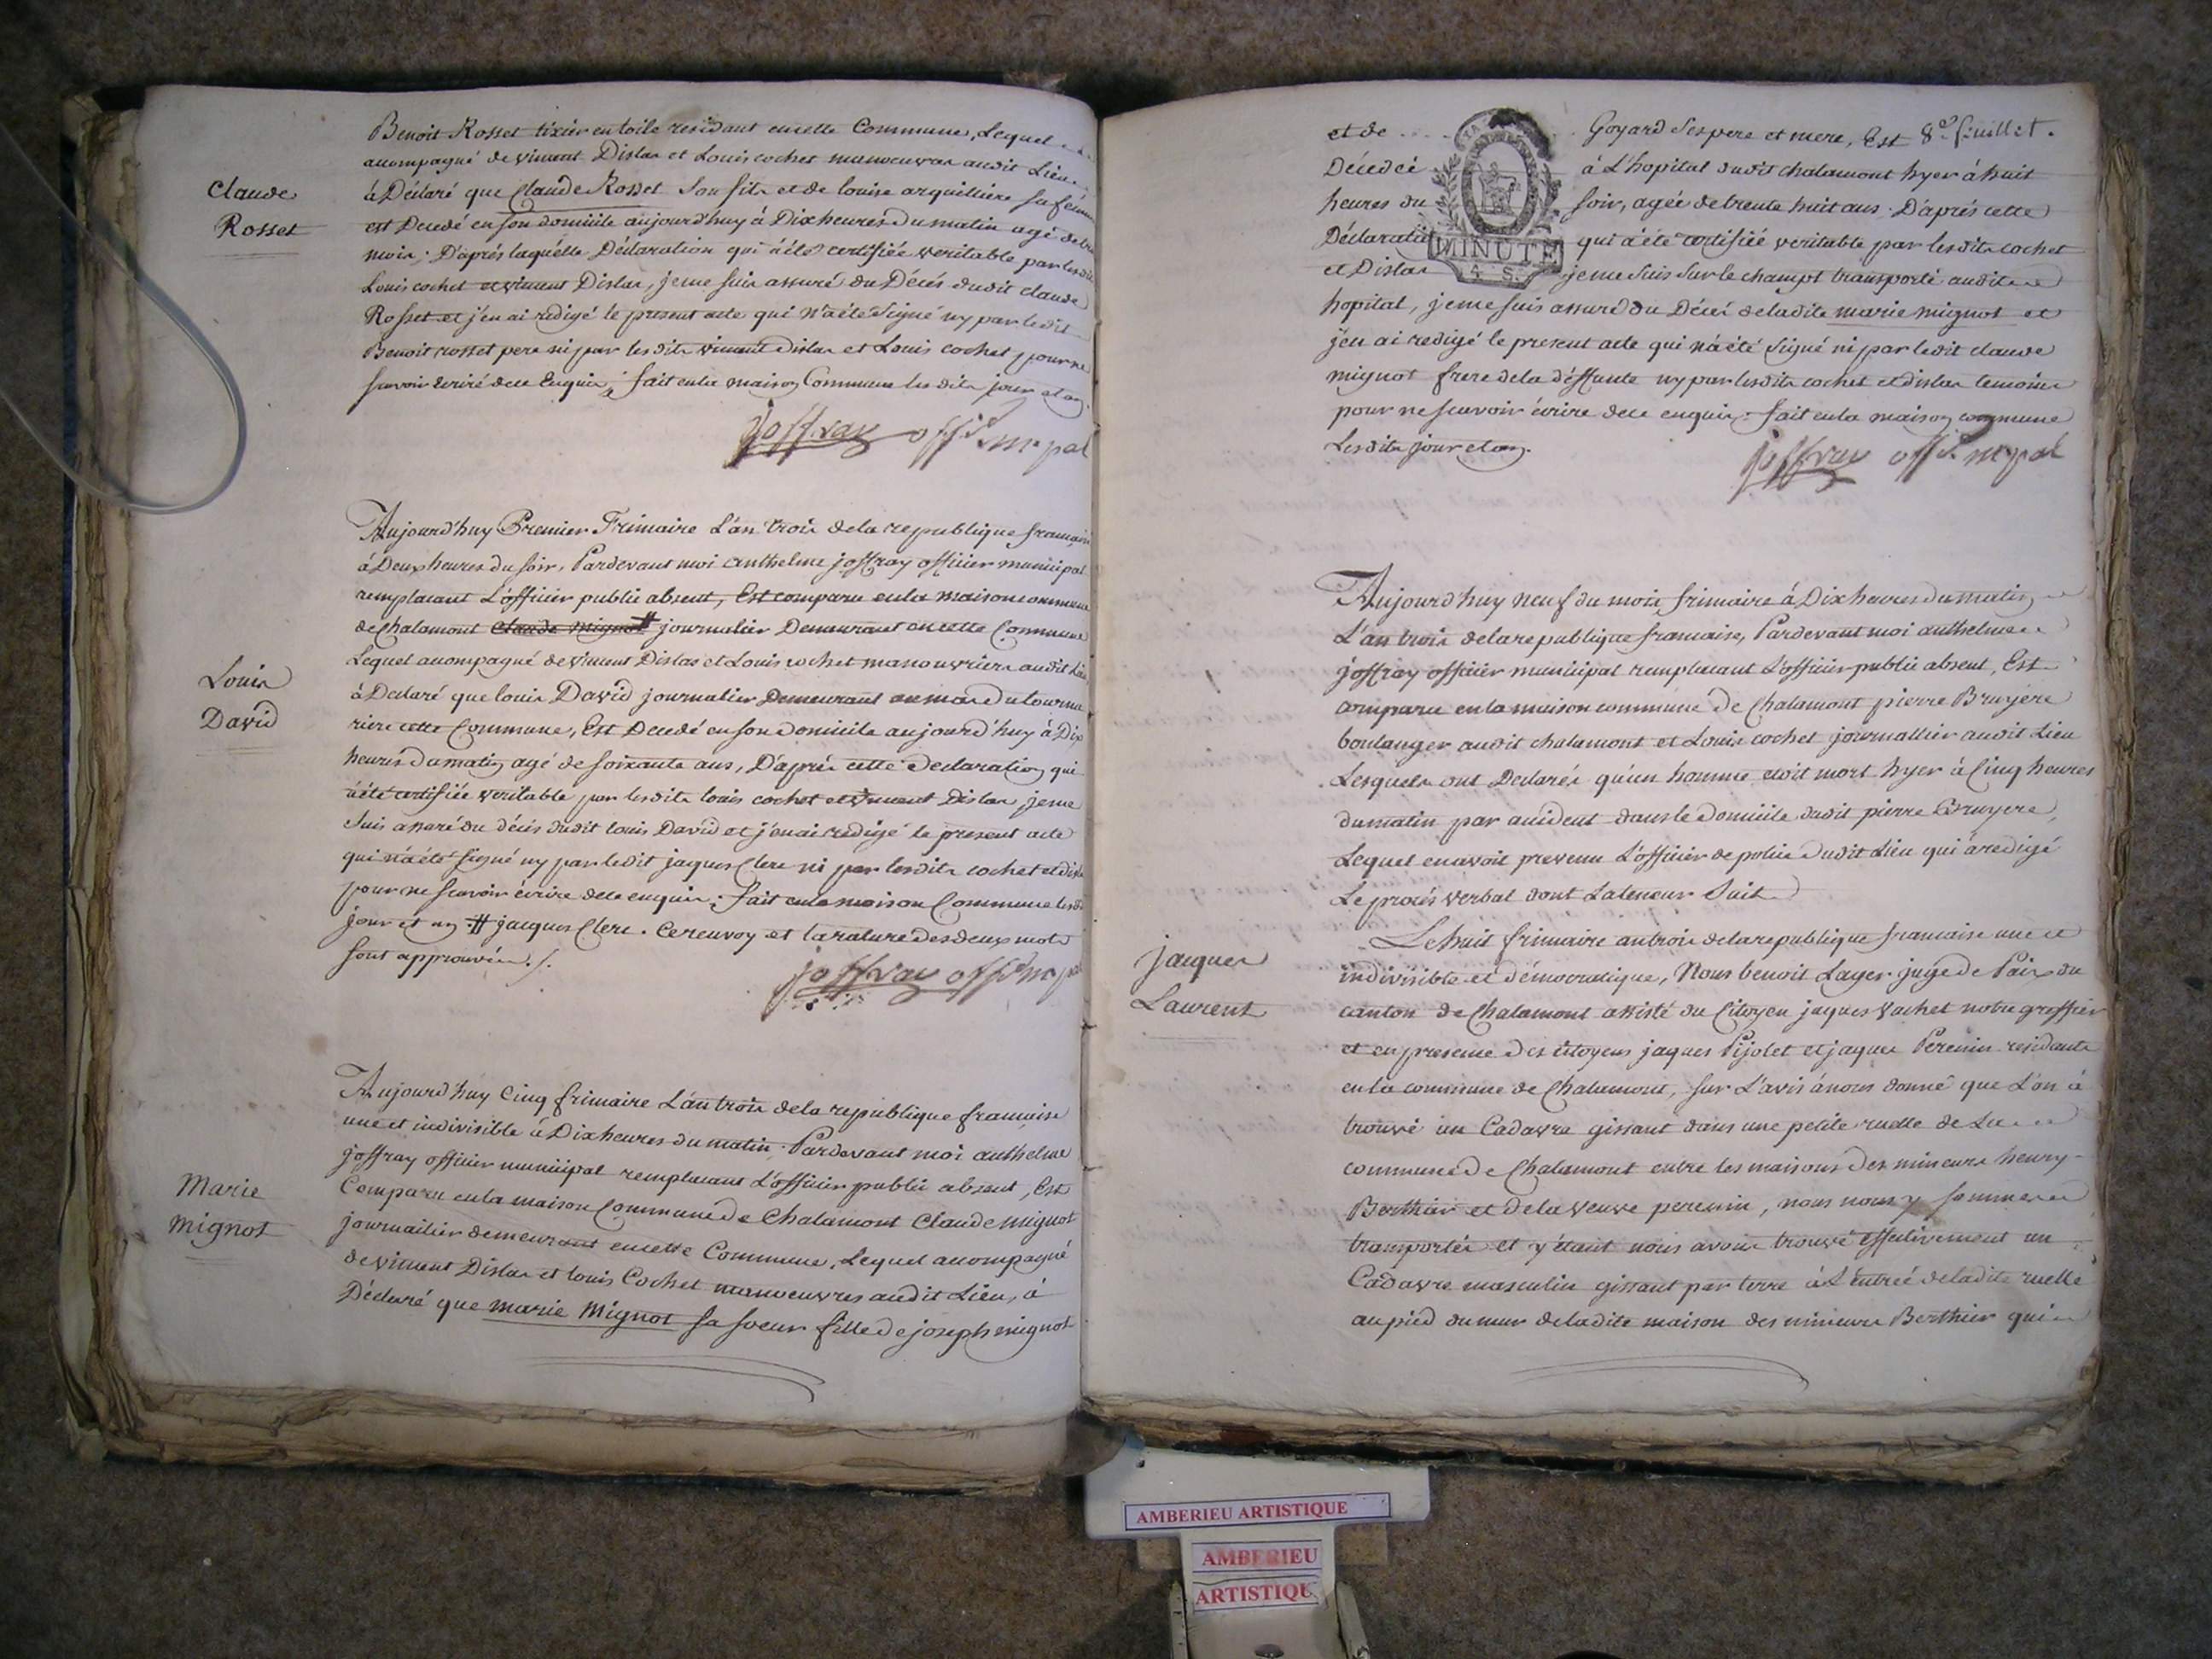 Benoit Rosset tixier en toile residant en cette Commune, Lequel
accompagné de vincent Dislas et Louis cochet manoeuvres audit Lieu
Claude
Rosset
à Déclaré que Claude Rosset son fils et de louise arquilliere sa femme
est Decedé en son domicile aujourd'huy à Dix heures du matin agé de
mois; D'après laquelle Déclaration qui a été certifiée veritable par lesdits
Louis cochet et vincent Dislas, je me suis assuré du Décés dudit claude
Rosset et j'en ai redigé le present acte qui n'a été Signé ny par ledit
Benoit rosset pere ni par lesdits vincent dislas et Louis cochet pour ne
scavoir écrire de ce Enquis; fait en la maison Commune lesdits jour et an.
joffray offer mpal
Aujourd'huy Premier Frimaire L'an trois de la republique francaise
à Deux heures du soir, Pardevant moi anthelme joffray officier municipal
remplacant L'officier public absent, Est comparu en la maison commune
de Chalamont Claude Mignot # journalier Demeurant en cette Commune
Lequel accompagné de vincent Dislas et Louis cochet manouvriers audit Lieu
Louis
David
à Declaré que louis David journalier Demeurant au mas du tourne
riere cette Commune, Est Decedé en son Domicile aujourd'huy à Dix
heures du matin agé de soixante ans, D'après cette Declaration qui
a été certifiée veritable par lesdits louis cochet et vincent Dislas je me
Suis assuré du décés dudit louis David et j'en ai redigé le present acte
qui n'a été signé ny par ledit jaques Clerc ni par lesdits cochet et dislas
pour ne scavoir écrire de ce enquis; fait en la maison Commune lesdits
jour et an # jacques Clerc. Ce renvoy et la rature des deux mots
sont approuvés./.
joffray offer mpal
Aujourd'huy Cinq frimaire L'an trois de la republique francaise
une et indivisible à Dix heures du matin; Pardevant moi anthelme
joffray officier municipal remplacant L'officier public absent, Est
Marie
mignot
Comparu en la maison Commune de Chalamont Claude mignot
journailier demeurant en cette Commune, Lequel accompagné
de vincent Dislas et louis Cochet manoeuvres audit Lieu, à
Déclaré que marie Mignot sa soeur fille de joseph mignot
et de .... Goyard Ses pere et mere, Est 8e fuillet.
Décédée à L'hopital dudit chalamont hyer à huit
heures du soir, agée de trente huit ans. D'après cette
Déclaration qui a été certifiée veritable par lesdits cochet
et Dislas je me Suis Sur le champt transporté audit
MINUTE
4 S.
hopital, je me suis assuré du Décés de ladite marie mignot et
j'en ai redigé le present acte qui n'a été signé ni par ledit claude
mignot frere de la déffunte ny par lesdits cochet et dislas temoins
pour ne scavoir écrire de ce enquis. fait en la maison commune
Lesdits jour et an.
joffray offer mpal
Aujourd'huy neuf du mois frimaire à Dix heures du matin
L'an trois de la republique francaise, Pardevant moi anthelme
joffray officier municipal remplacant L'officier public absent, Est
comparu en la maison commune de Chalamont pierre Bruyere
boulanger audit chalamont et Louis cochet journallier audit Lieu
Lesquels ont Declarés qu'un homme etoit mort hyer à Cinq heures
du matin par accident dans le Domicile dudit pierre Bruyere,
Lequel en avoit prevenu L'officier de police dudit Lieu qui a redigé
Le procés verbal dont La teneur Suit
jaques
Laurent
Le huit frimaire an trois de la republique francaise une et
indivisible et démocratique, Nous benoit Lager juge de Paix du
canton de Chalamont assisté du Citoyen jaques Vachet notre greffier
et en presence des citoyens jaques Pijolet et jaques Perenin residants
en la commune de Chalamont, sur L'avis à nous donné que L'on à
trouvé un Cadavre gissant dans une petite ruelle de La
commune de Chalamont entre les maisons des mineurs henry
Berthier et de la veuve perenin, nous nous y sommes
transportés et y étant nous avons trouvé effectivement un
Cadavre masculin gissant par terre à L'entrée de ladite ruelle
au pied du mur de ladite maison des mineurs Berthier qui
AMBERIEU ARTISTIQUE
AMBERIEU
ARTISTIQU